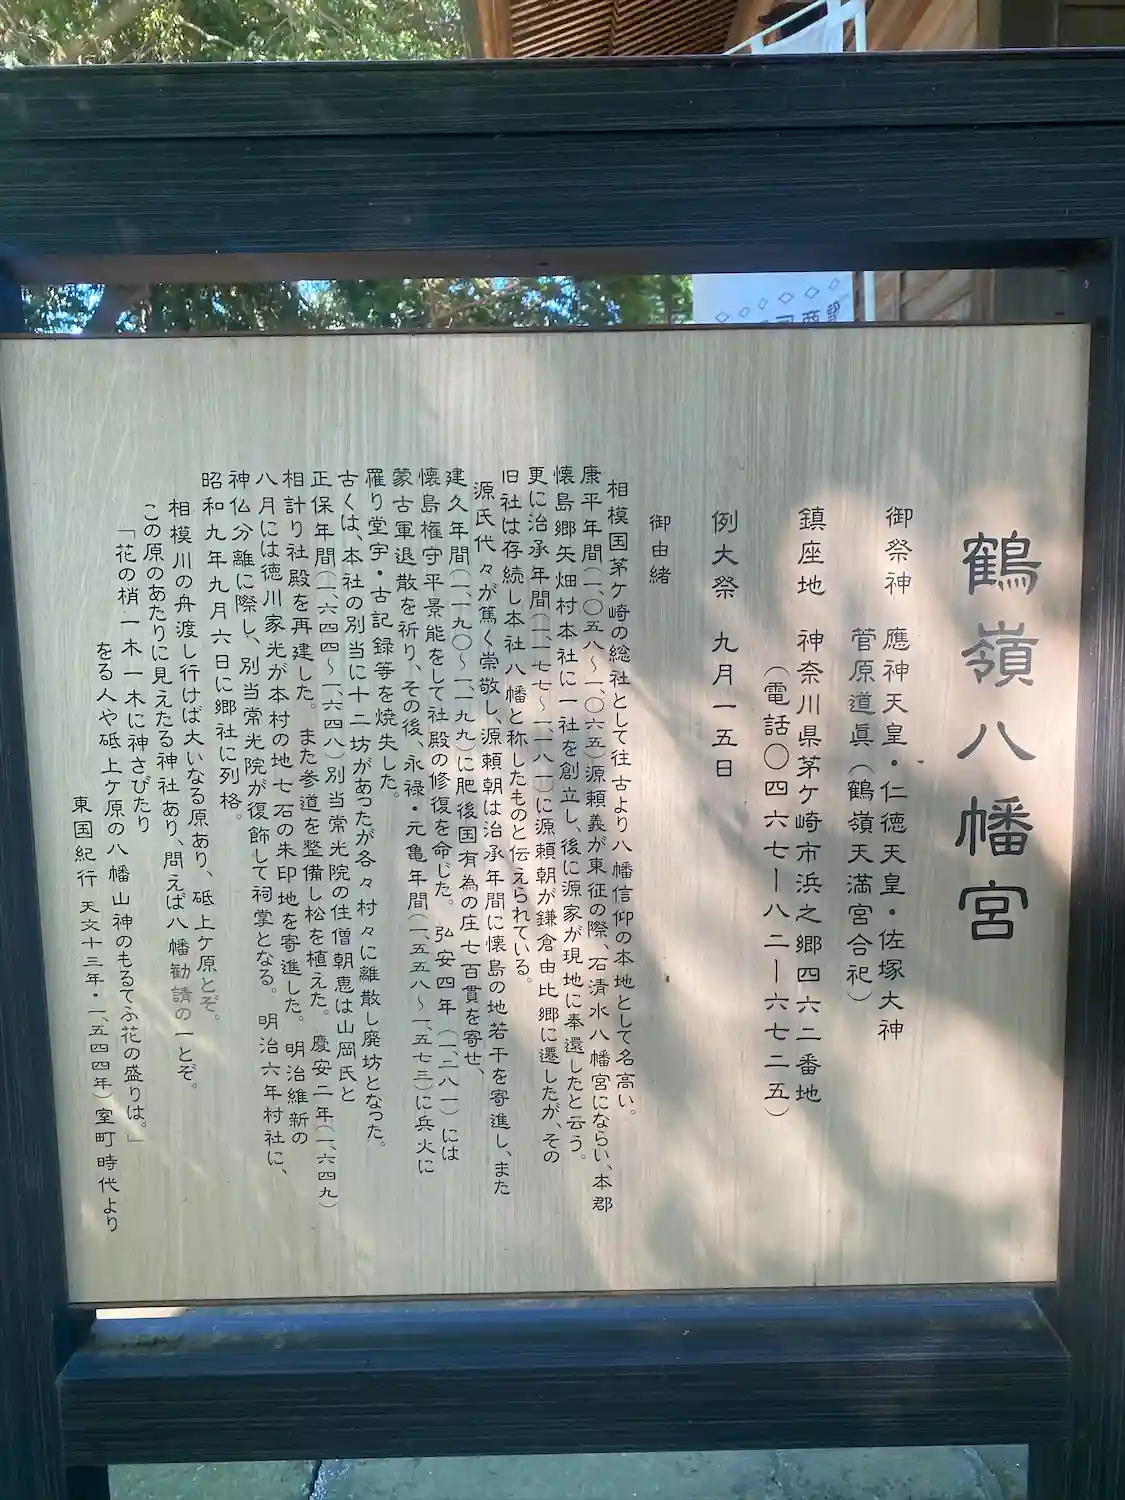 鶴嶺八幡宮
御祭神 應神天皇・仁徳天皇・佐塚大神
菅原道眞（鶴嶺天満宮合祀）
鎮座地 神奈川県茅ケ崎市浜之郷四六二番地
（電話〇四六七ー八二ー六七二五）
例大祭 九月一五日
御由緒
相模国茅ケ崎の総社として往古より八幡信仰の本地として名高い。
康平年間（一、〇五八～一、〇六五）源頼義が東征の際、石清水八幡宮にならい、本郡
懐島郷矢畑村本社に一社を創立し、後に源家が現地に奉還したと云う。
更に治承年間（一、一七七～一、一八一）に源頼朝が鎌倉由比郷に遷したが、その
旧社は存続し本社八幡と称したものと伝えられている。
源氏代々が篤く崇敬し、源頼朝は治承年間に懐島の地若干を寄進し、また
建久年間（一、一九〇～一、一九九）に肥後国有為の庄七百貫を寄せ、
懐島権守平景能をして社殿の修復を命じた。弘安四年（一、二八一）には
蒙古軍退散を祈り、その後、永禄・元亀年間（一、五五八～一、五七三）に兵火に
罹り堂宇・古記録等を焼失した。
古くは、本社の別当に十二坊があったが各々村々に離散し廃坊となった。
正保年間（一、六四四～一、六四八）別当常光院の住僧朝恵は山岡氏と
相計り社殿を再建した。また参道を整備し松を植えた。慶安二年（一、六四九）
八月には徳川家光が本村の地七石の朱印地を寄進した。明治維新の
神仏分離に際し、別当常光院が復飾して祠掌となる。明治六年村社に、
昭和九年九月六日に郷社に列格。
相模川の舟渡し行けば大いなる原あり、砥上ケ原とぞ。
この原のあたりに見えたる神社あり、問えば八幡勧請の一とぞ。
「花の梢一木一木に神さびたり
をる人や砥上ケ原の八幡山神のもるてふ花の盛りは。」
東国紀行 天文十三年・一、五四四年）室町時代より